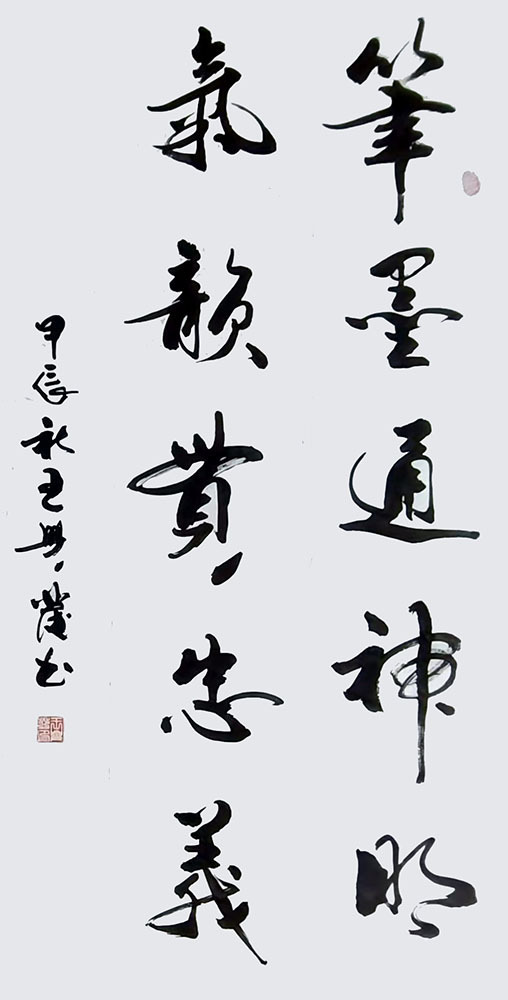 筆墨通神明
氣韻貫忠義
甲辰秋王興薇书